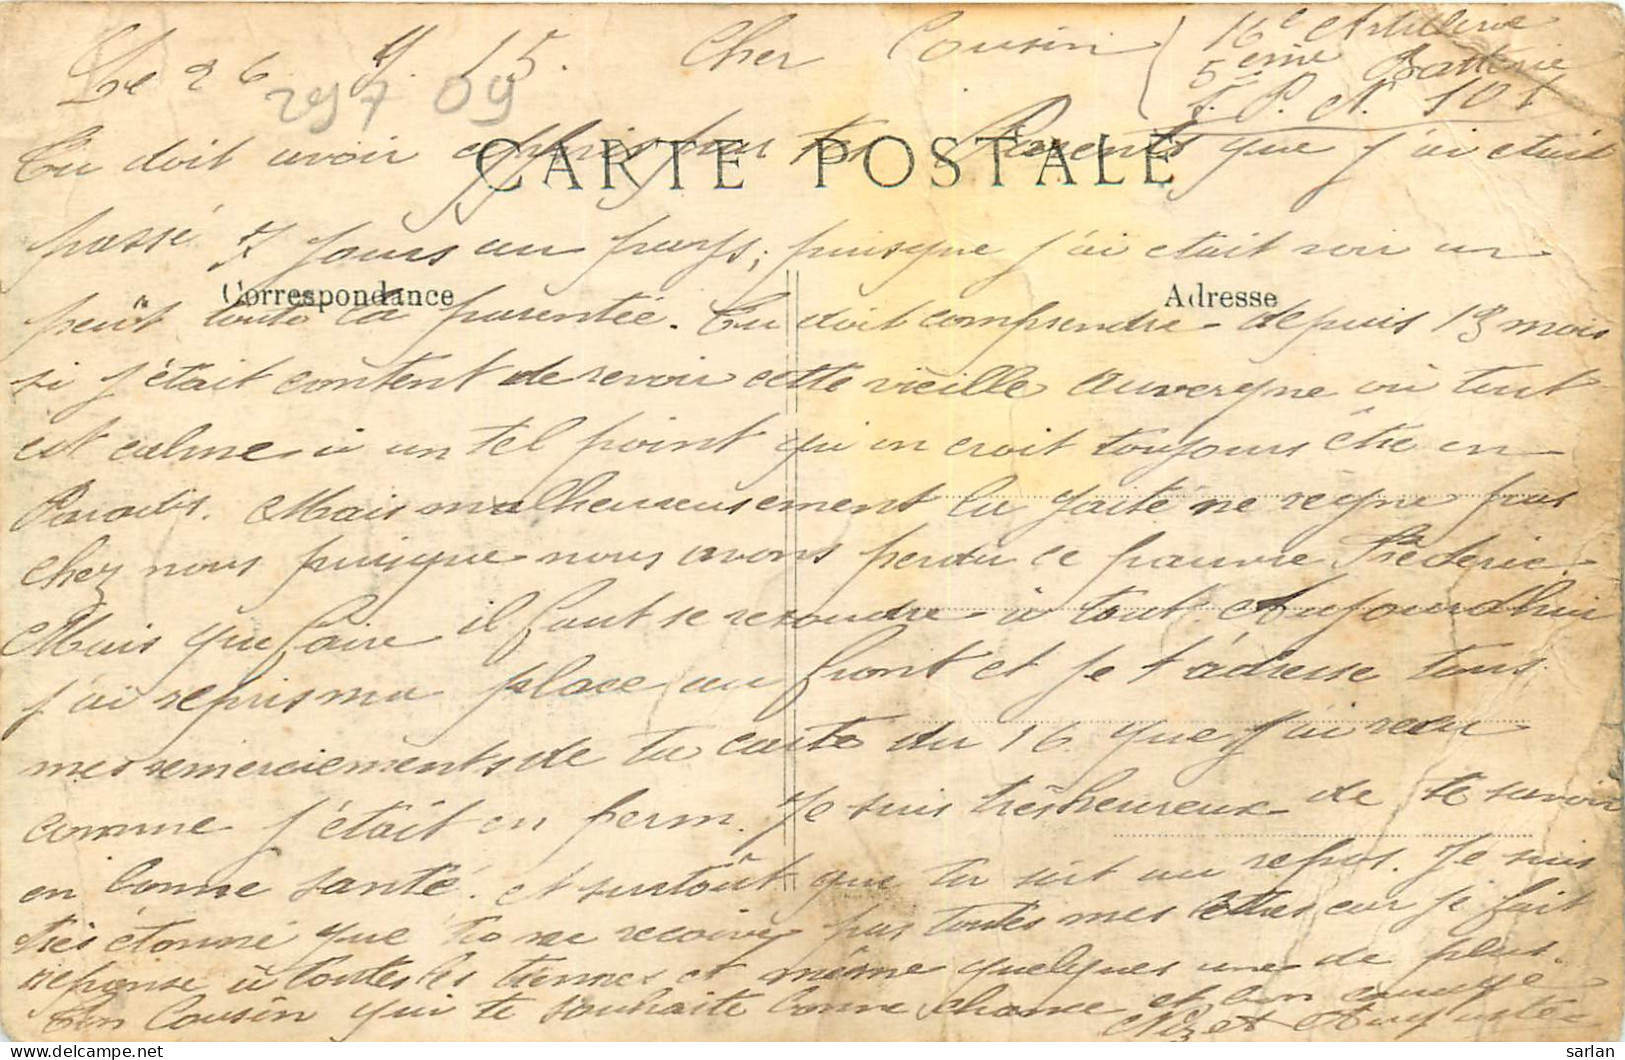 Le 26 9. 15. Cher Cousin
16e Artillerie
5eme Batterie
S. P. N. 101
297 09
CARTE POSTALE
Tu doit avoir appris par tes Parents que j'ai etait
passé 7 jours au pays; puisque j'ai etait voir un
Correspondance
Adresse
peut toute la parentée. Tu doit comprendre depuis 13 mois
si j'était content de revoir cette vieille Auvergne où tout
est calme à un tel point qu'on croit toujours être en
Paradis. Mais malheureusement la gaité ne regne pas
chez nous puisque nous avons perdu ce pauvre Fréderic.
Mais que faire il faut se resoudre à tout. Aujourdhui
j'ai repris ma place au front et je t'adresse tous
mes remerciements de ta carte du 16 que j'ai recu
comme j'était en perm. Je suis très heureux de te savoir
en bonne santé. et surtoût que tu soit au repos. Je suis
très étonné que tu ne recoive pas toutes mes lettres car je fait
reponse à toutes les tiennes et même quelques une de plus.
Ton Cousin qui te souhaite bonne chance et bon courage
Auguste
sarlan
delcampe.net